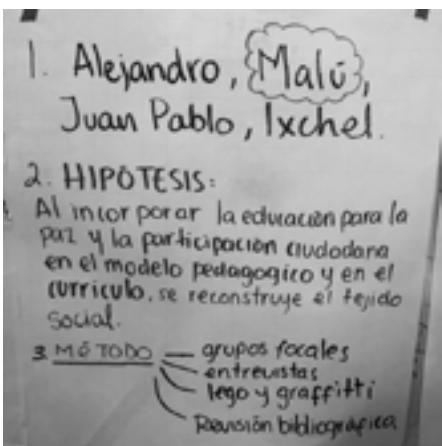 1. Alejandro, Malú,
Juan Pablo, Ixchel.
2. HIPÓTESIS:
Al incorporar la educación para la
paz y la participación ciudadana
en el modelo pedagogico y en el
currículo, se reconstruye el tejido
social.
3 MÉTODO
grupos focales
entrevistas
lego y graffitti
Revisión bibliográfica